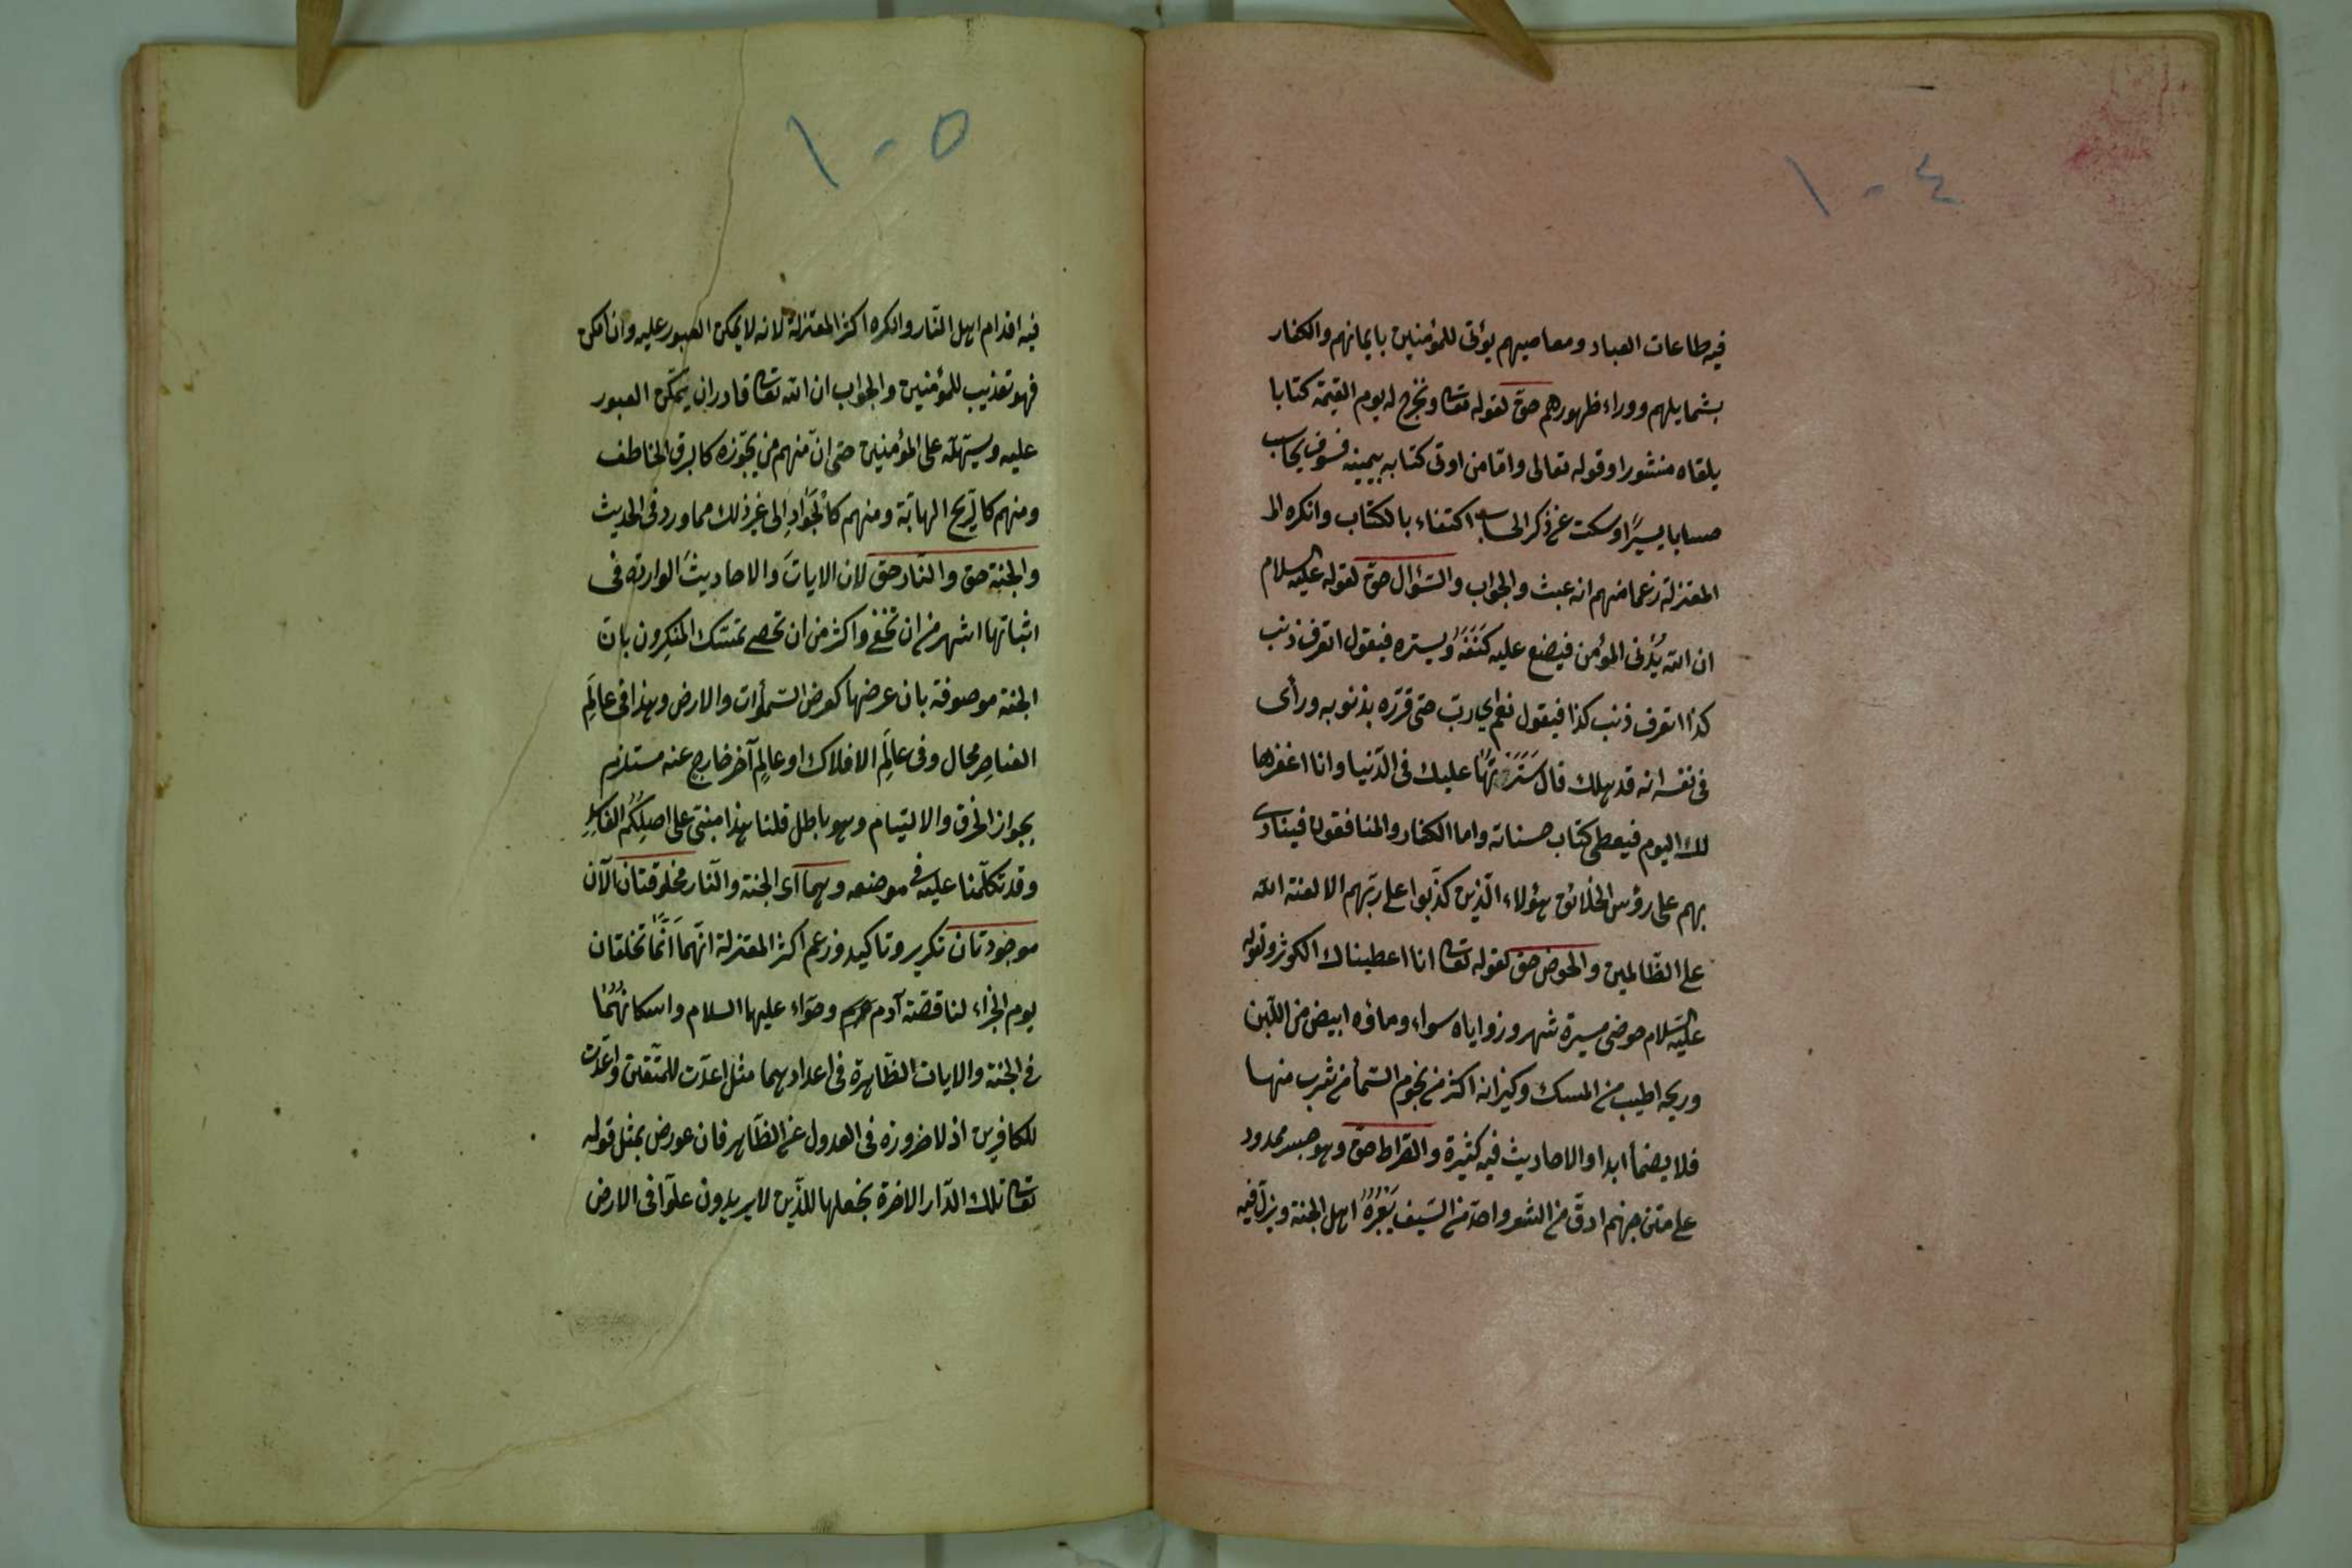 ١٠٤
فيه طاعات العباد ومعاصيهم يؤتى للمؤمنين بايمانهم والكفار
بشمايلهم ووراء ظهورهم حق لقوله تعا ونخرج له يوم القيمة كتابا
يلقاه منشورا وقوله تعالى واما من اوتى كتابه بيمينه فسوف يحاسب
حسابا يسيرًا وسكت عن ذكر الحساب اكتفاء بالكتاب وانكره الـ
المعتزلة زعما منهم انه عبث والجواب والسّؤال حق لقوله عليه السلام
ان الله يُدْنى المؤمن فيضع عليه كَنَفَهُ ويستره فيقول اتعرف ذنب
كذا اتعرف ذنب كذا فيقول نعم اي ربّ حتى قرّره بذنوبه ورأى
فى نفسه انه قد هلك قال سَتَرْتُهَا عليك فى الدّنيا وانا اغفرها
لك اليوم فيعطى كتاب حسناته واما الكفار والمنافقون فينادى
بهم على رؤس الخلائق هؤلاء الّذين كذّبوا على ربّهم الا لعنة الله
على الظّالمين والحوض حق لقوله تعا انا اعطيناك الكوثر وقوله
عليه السّلام حوضى مسيرة شهر وزواياه سواء وماؤه ابيض من اللّبن
وريحه اطيب من المسك وكيزانه اكثر من نجوم السّمأ من شرب منها
فلا يضمأ ابدا والاحاديث فيه كثيرة والصّراط حق وهو جسر ممدود
على متن جهنم ادقّ من الشعر واحدّ من السّيف يَعْبُرُهُ اهل الجنة ويزلّ فيه
١٠٥
فيه اقدام اهل النّار وانكره اكثر المعتزلة لانه لا يمكن العبور عليه وان امكن
فهو تعذيب للمؤمنين والجواب ان الله تعا قادر ان يمكّن العبور
عليه ويسهّله على المؤمنين حتى انّ منهم من يجوزه كالبرق الخاطف
ومنهم كالرّيح الهابّة ومنهم كالْجَوَادِ الى غير ذلك مما ورد فى الحديث
والجنة حق والنار حق لان الاياتَ والاحاديثَ الواردة فى
اثباتها اشهر من ان تخفى واكثر من ان تحصى تمسّك المنكرون بانّ
الجنة موصوفة بان عرضها كعرض السّموات والارض وهذا فى عالَمِ
العناصِر محال وفى عالَمِ الافلاك او عالم آخر خارج عنه مستلزم
بجواز الخرق والالتيام وهو باطل قلنا هذا مبنىّ على اصلِكُمُ الفاسِدِ
وقد تكلّمنا عليه فى موضعه وهما اى الجنة والنّار مخلوقتان الآن
موجودتان تكرير وتاكيد وزعم اكثر المعتزلة انّهما انّما تخلقان
يوم الجزاء لنا قصّة آدم وحوّاء عليهما السلام واسكانُهُمَا
فى الجنة والايات الظّاهرة فى اعدادهما مثل اعدّت للمتّقين واعدّت
للكافرين اذ لا ضرورة فى العدول عن الظّاهر فان عورض بمثل قوله
تعا تلك الدّار الاخرة نجعلها للّذين لا يريدون علوّا فى الارض